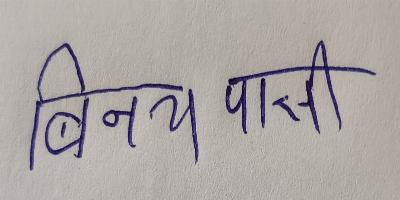 विनय पासी